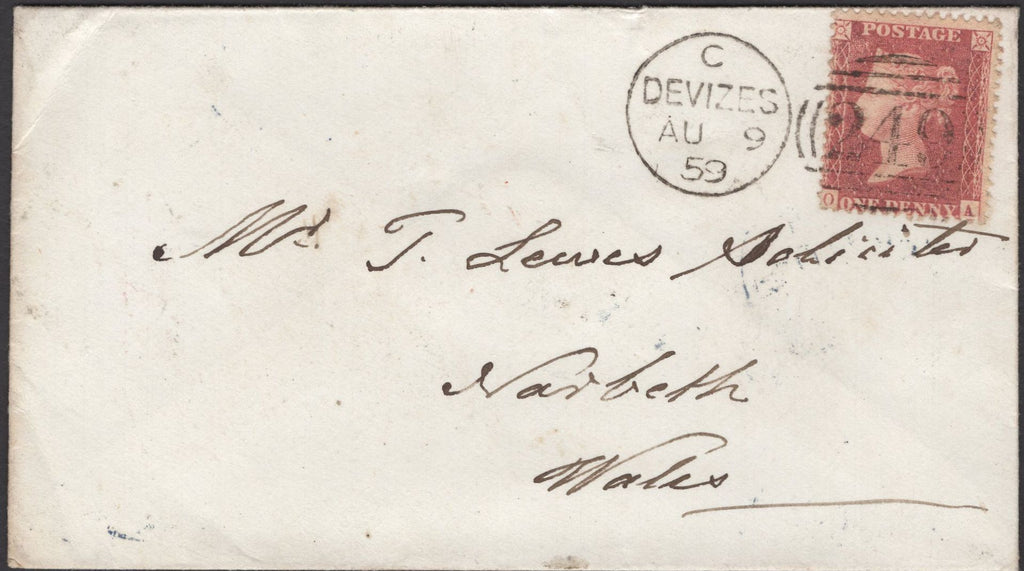 POSTAGE
C
DEVIZES
AU 9
59
249
O ONE PENNY A
Mr T. Lewes Solicitor
Narbeth
Wales